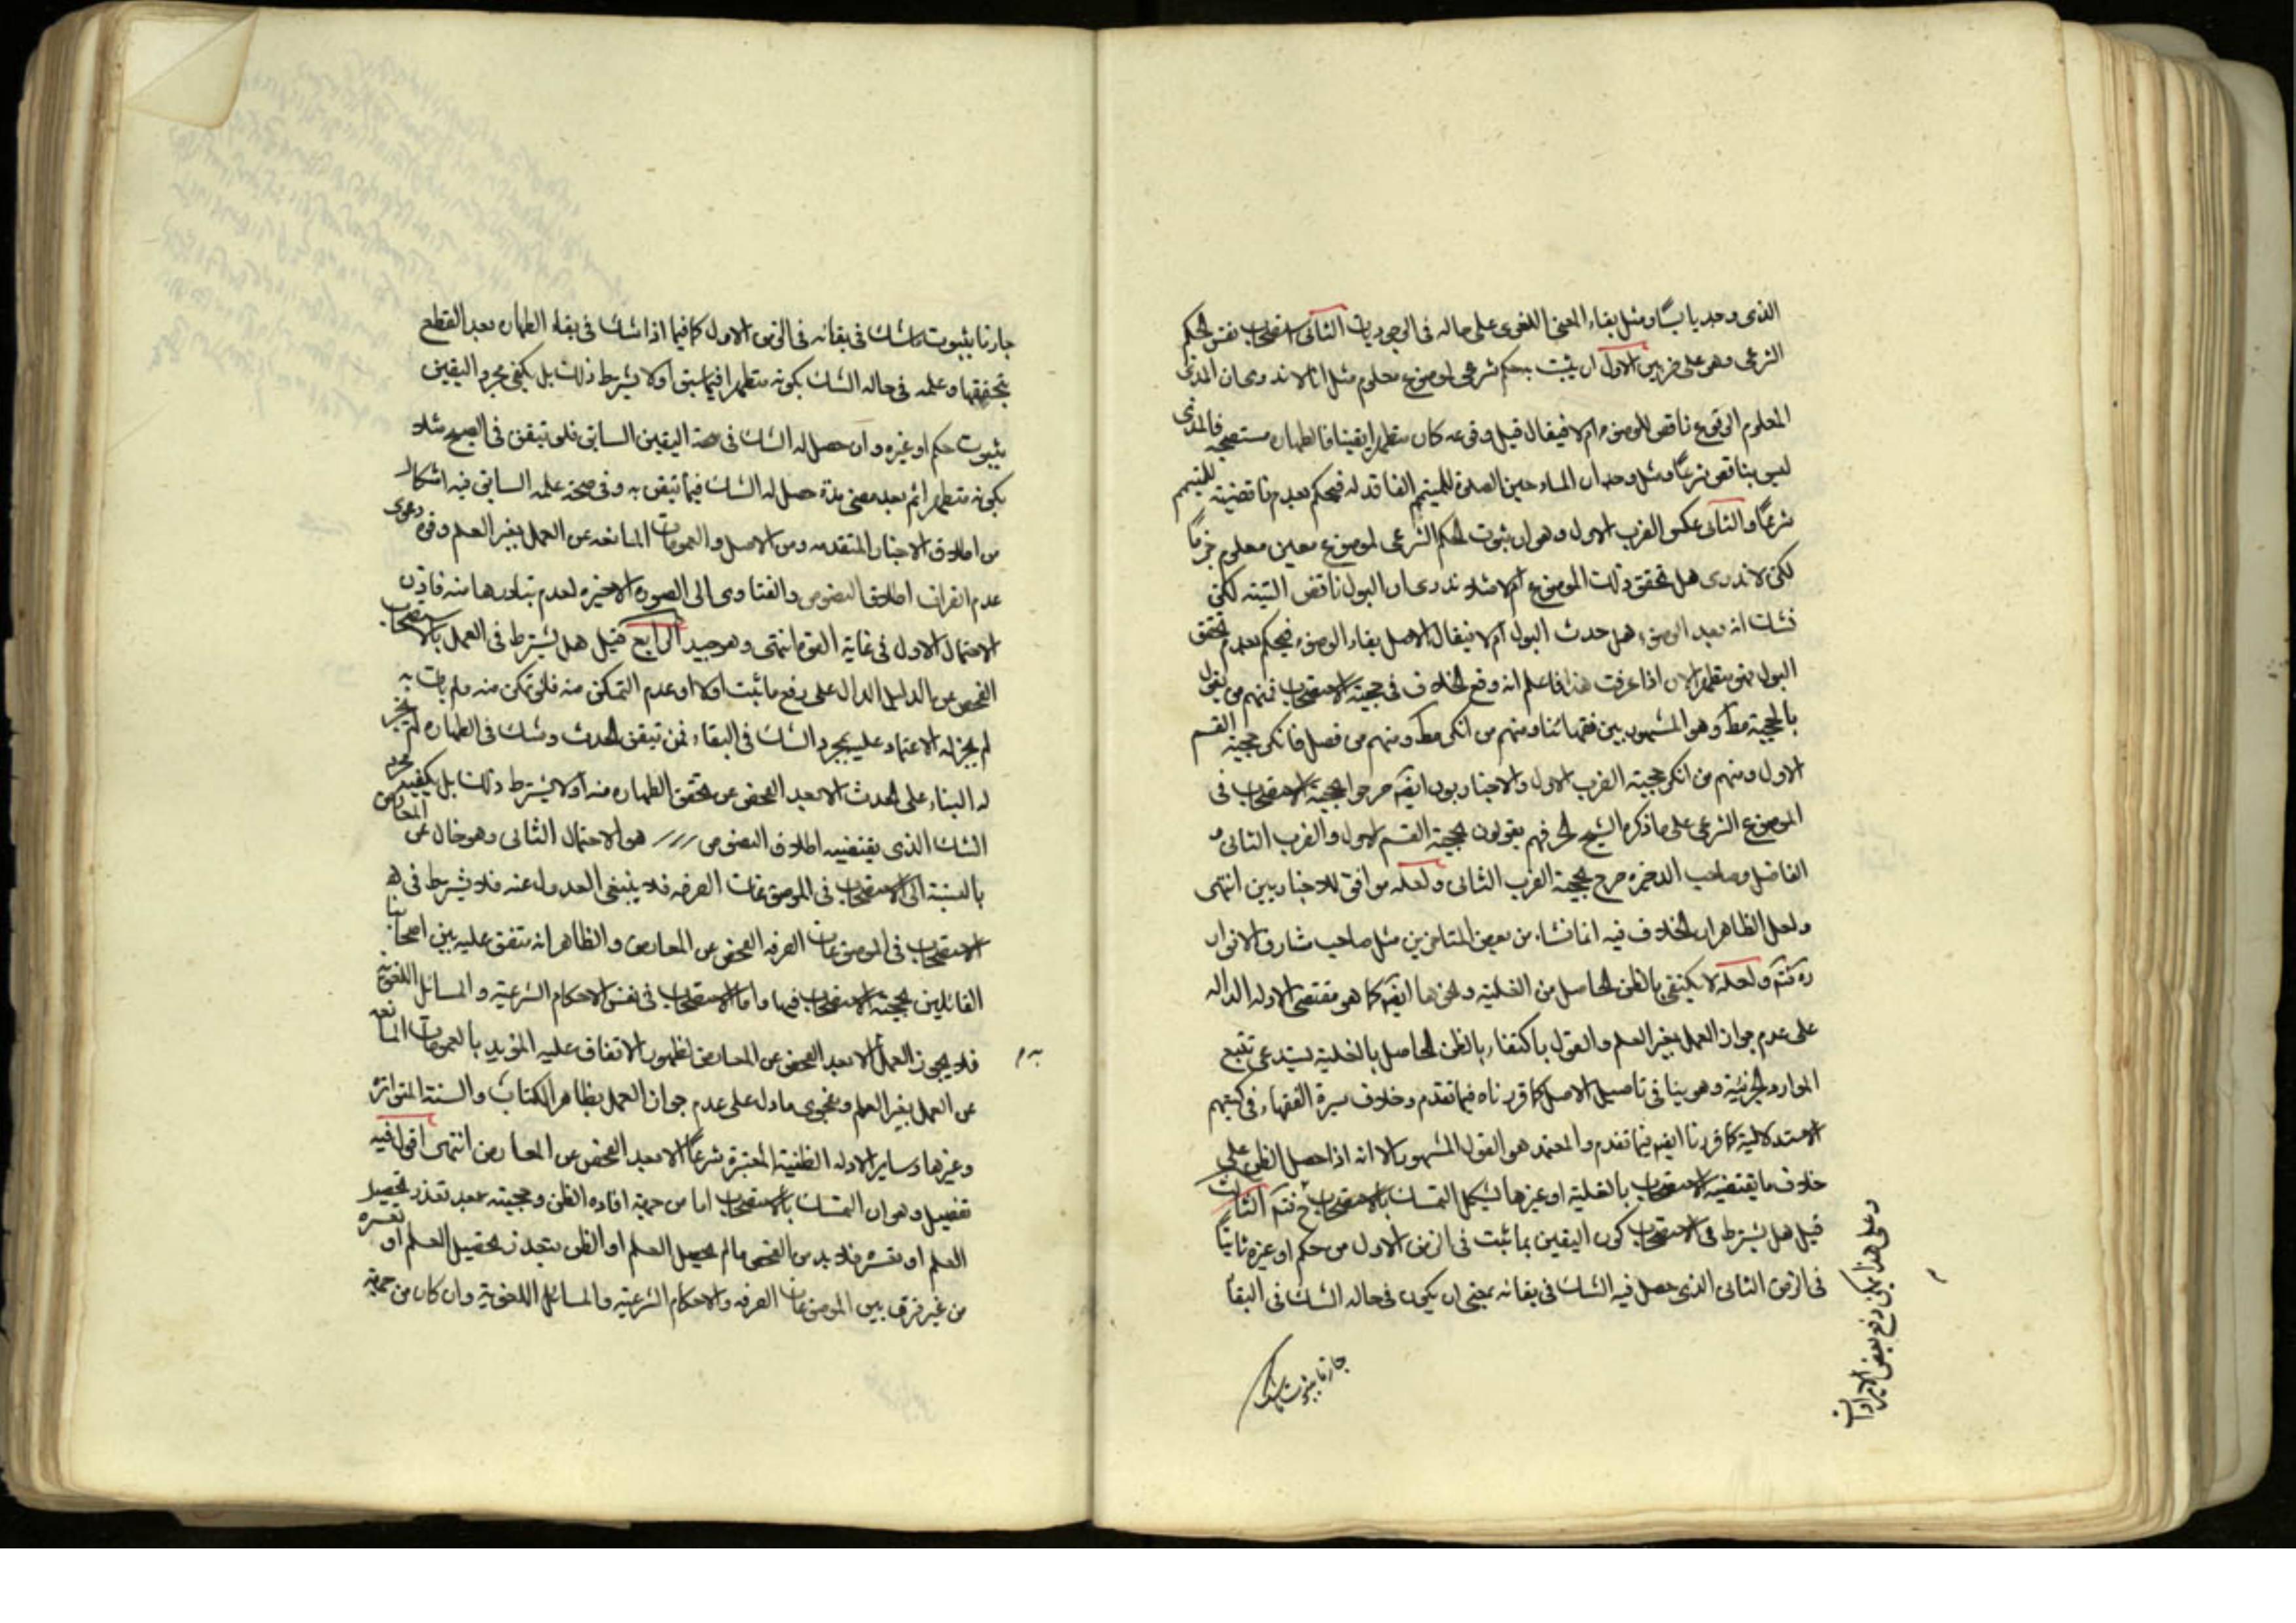 الذى وجد يابسًا ومثل بقاء المعنى اللغوى على حاله فى الوجوديات الثانى استصحاب نفس الحكم
الشرعى وهو على ضربين الاول ان يثبت بحكم شرعى لموضوع معلوم مثل انا لا ندرى ان المذى
المعلوم الوقوع ناقض للوضوء ام لا فيقال قبل وقوعه كان متطهرا يقينا فالطهاره مستصحبه فالمذى
ليس بناقض شرعًا ومثل وجدان الماء حين الصلوة للمتيمم الفاقد له فيحكم بعدم ناقضيته للتيمم
شرعًا والثانى عكس الضرب الاول وهو ان ثبوت الحكم الشرعى لموضوع معين معلوم جزمًا
لكن لا ندرى هل تحقق ذلك الموضوع ام لا مثلا ندرى ان البول ناقض البتته لكن
نشك انه بعد الوضوء هل حدث البول ام لا فيقال الاصل بقاء الوضوء فيحكم بعدم تحقق
البول فهو متطهر الان اذا عرفت هذا فاعلم انه وقع الخلاف فى حجية الاستصحاب فمنهم من يقول
بالحجية مط وهو المشهور بين فقهائنا ومنهم من انكر مط ومنهم من فصل فانكر حجية القسم
الاول ومنهم من انكر حجية الضرب الاول والاخباريون ايضا صرحوا بحجية الاستصحاب فى
الموضوع الشرعى على ما ذكره الشيخ الحر فهم يقولون بحجية القسم الاول والضرب الثانى و
الفاضل وصاحب الذخيره صرح بحجية الضرب الثانى ولعله موافق للاخباريين انتهى
ولعل الظاهر ان الخلاف فيه انما نشاء من بعض المتاخرين مثل صاحب مشارق الانوار
ره ولعله لا يكتفى بالظن الحاصل من الغلبة ونحوها ايضا كما هو مقتضى الادله الداله
على عدم جواز العمل بغير العلم والقول باكتفاء بالظن الحاصل بالغلبة يستدعى تتبع
الموارد الجزئية وهو ينافى تاصيل الاصل كما قررناه فيما تقدم وخلاف سيرة الفقهاء فى كتبهم
الاستدلالية كما قررنا ايضا فيما تقدم والمعتمد هو القول المشهور الا انه اذا حصل الظن على
خلاف ما يقتضيه الاستصحاب بالغلبة او غيرها يشكل التمسك بالاستصحاب ح الثالث
قيل هل يشترط فى الاستصحاب كون اليقين بما ثبت فى الزمن الاول من حكم او غيره ثابتًا
فى الزمن الثانى الذى حصل فيه الشك فى بقائه بمعنى ان يكون فى حاله الشك فى البقا
جازما بثبوت
وعلى هذا يمكن دفع بعض الايرادات
جازما بثبوت ما شك فى بقائه فى الزمن الاول كما فيما اذا شك فى بقاء الطهاره بعد القطع
بتحققها وعلمه فى حاله الشك بكونه متطهرا فيما سبق او لا يشترط ذلك بل يكفى مجرد اليقين
بثبوت حكم او غيره وان حصل له الشك فى صحة اليقين السابق فلو تيقن فى الصبح مثلا
بكونه متطهرا ثم بعد مضى مدة حصل له الشك فيما تيقن به وفى صحة علمه السابق فيه اشكال
من اطلاق الاخبار المتقدمه ومن الاصل والعمومات المانعه عن العمل بغير العلم وقوة دعوى
عدم انصراف اطلاق النصوص والفتاوى الى الصورة الاخيره لعدم تبادرها منه فاذن
الاحتمال الاول فى غاية القوة انتهى وهو جيد الرابع قيل هل يشترط فى العمل بالاستصحاب
الفحص عن الدليل الدال على رفع ما ثبت اولا او عدم التمكن منه فلو تمكن منه ولم يات به
لم يجز له الاعتماد عليه بمجرد الشك فى البقاء فمن تيقن الحدث وشك فى الطهاره لم يجز
له البناء على الحدث الا بعد الفحص عن تحقق الطهاره منه او لا يشترط ذلك بل يكفيه مجرد
الشك الذى يقتضيه اطلاق النصوص هو الاحتمال الثانى وهو خال عن المعارض
بالنسبة الى الاستصحاب فى الموضوعات الصرفه فلا ينبغى العدول عنه فلا يشترط فى
الاستصحاب فى الموضوعات الصرفه الفحص عن المعارض والظاهر انه متفق عليه بين اصحابنا
القائلين بحجية الاستصحاب فيها واما الاستصحاب فى نفس الاحكام الشرعية والمسائل اللغوية
فلا يجوز العمل به الا بعد الفحص عن المعارض لظهور الاتفاق عليه المؤيد بالعمومات المانعه
عن العمل بغير العلم وبفحوى ما دل على عدم جواز العمل بظاهر الكتاب والسنة المتواتره
وغيرها وساير الادله الظنية المعتبرة شرعًا الا بعد الفحص عن المعارض انتهى اقول فيه
تفصيل وهو ان التمسك بالاستصحاب اما من جهة افاده الظن وحجيته بعد تعذر تحصيل
العلم او تعسره فلا بد من الفحص ما لم يحصل العلم او الظن بتعذر تحصيل العلم او تعسره
من غير فرق بين الموضوعات الصرفه والاحكام الشرعيه والمسائل اللغوية وان كان من جهة